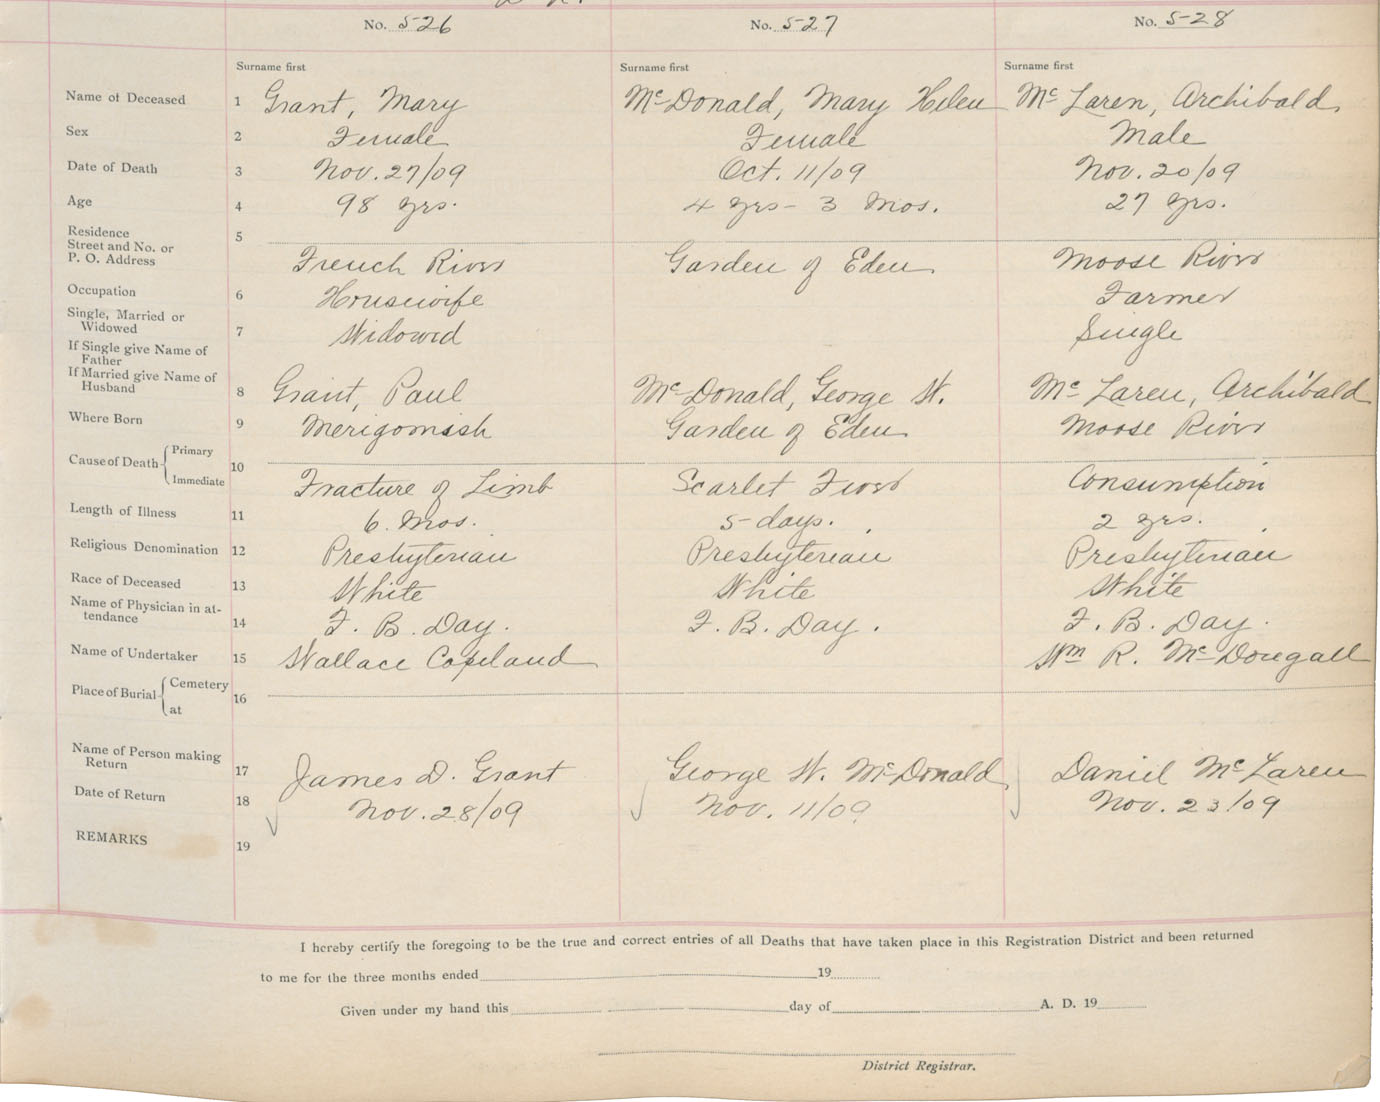 No. 526 No. 527 No. 528
Surname first Surname first Surname first
Name of Deceased 1 Grant, Mary McDonald, Mary Helen McLaren, Archibald
Sex 2 Female Female Male
Date of Death 3 Nov. 27/09 Oct. 11/09 Nov. 20/09
Age 4 98 yrs. 4 yrs - 3 Mos. 27 yrs.
Residence 5
Street and No. or
P. O. Address French River Garden of Eden Moose River
Occupation 6 Housewife Farmer
Single, Married or
Widowed 7 Widowed Single
If Single give Name of
Father
If Married give Name of
Husband 8 Grant, Paul McDonald, George W. McLaren, Archibald
Where Born 9 Merigomish Garden of Eden Moose River
Cause of Death Primary
Immediate 10 Fracture of Limb Scarlet Fever Consumption
Length of Illness 11 6 Mos. 5 days. 2 yrs.
Religious Denomination 12 Presbyterian Presbyterian Presbyterian
Race of Deceased 13 White White White
Name of Physician in at-
tendance 14 F. B. Day. F. B. Day. F. B. Day.
Name of Undertaker 15 Wallace Copeland Wm R. McDougall
Place of Burial Cemetery
at 16
Name of Person making
Return 17 James D. Grant George W. McDonald Daniel McLaren
Date of Return 18 Nov. 28/09 Nov. 11/09 Nov. 23/09
REMARKS 19
I hereby certify the foregoing to be the true and correct entries of all Deaths that have taken place in this Registration District and been returned
to me for the three months ended 19
Given under my hand this day of A. D. 19
District Registrar.